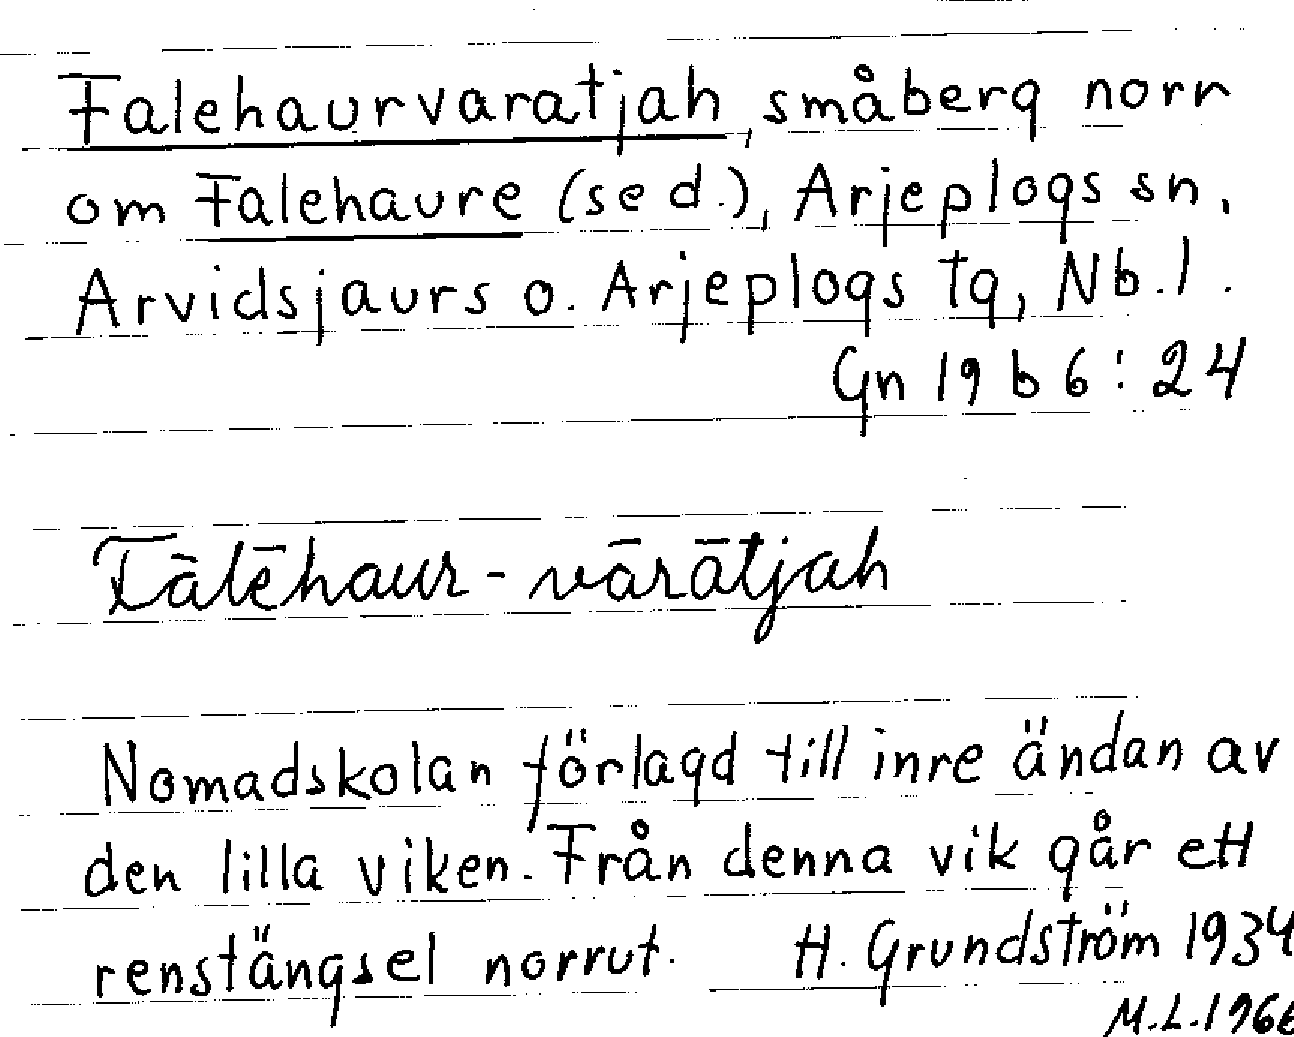 Falehaurvaratjah, småberg norr
om Falehaure (se d.), Arjeplogs sn,
Arvidsjaurs o. Arjeplogs tg, Nb.l.
Gn 19 b 6:24
Fàlēhaur-vārātjah
Nomadskolan förlagd till inre ändan av
den lilla viken. Från denna vik går ett
renstängsel norrut. H. Grundström 1934
M.L.1966